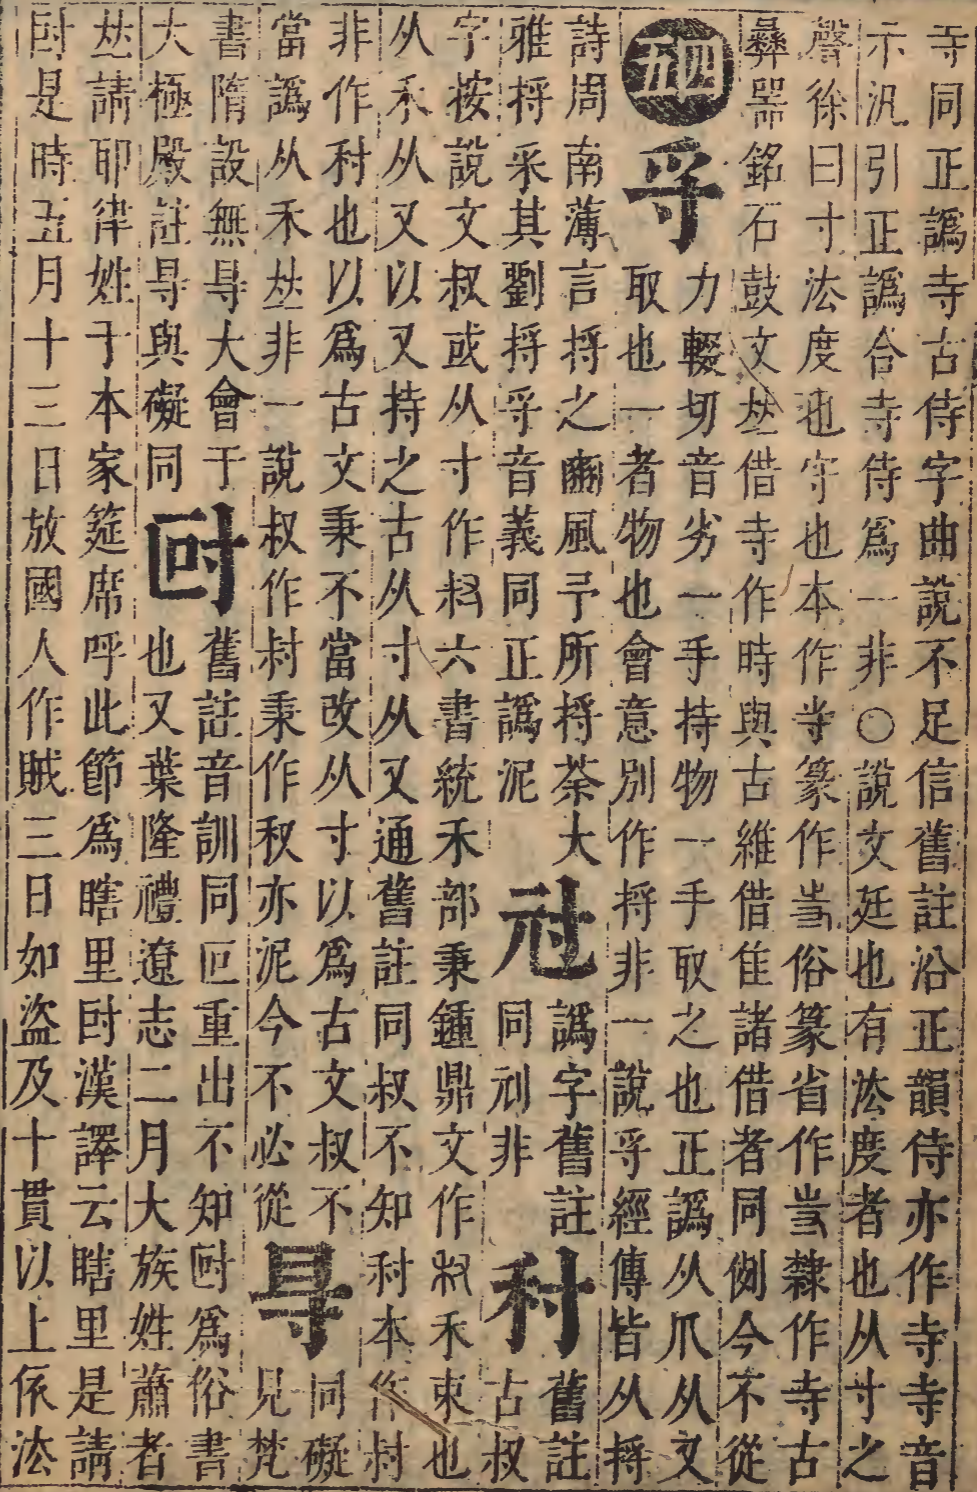 寺同正譌寺古侍字曲說不足信舊註沿正韻侍亦作寺寺音
示汎引正譌合寺侍爲一非○說文廷也有法度者也从寸之
聲徐曰寸法度也守也本作寺篆作𡴤俗篆省作𡴤隸作寺古
彝器銘石鼓文𠀤借寺作時與古維借隹諸借者同例今不從
四
五
寽
力輟切音劣一手持物一手取之也正譌从爪从又
取也一者物也會意別作捋非一說寽經傳皆从捋
詩周南薄言捋之豳風予所捋荼大
雅捋采其劉捋寽音義同正譌泥
𡬝
譌字舊註
同刓非
𥝢
舊註
古叔
字按說文叔或从寸作𡬧六書統禾部秉鍾鼎文作𥝢禾束也
从禾从又以又持之古从寸从又通舊註同叔不知𥝢本作𡬧
非作𥝢也以爲古文秉不當改从寸以爲古文叔不
當譌从禾𠀤非一說叔作𡬧秉作秋亦泥今不必從
㝵
同礙
見梵
書隋設無㝵大會于
大極殿註㝵與礙同
𡬡
舊註音訓同叵重出不知𡬡爲俗書
也又葉隆禮遼志二月大族姓蕭者
𠀤請耶律姓于本家筵席呼此節爲瞎里𡬡漢譯云瞎里是請
𡬡是時五月十三日放國人作賊三日如盜及十貫以上依法